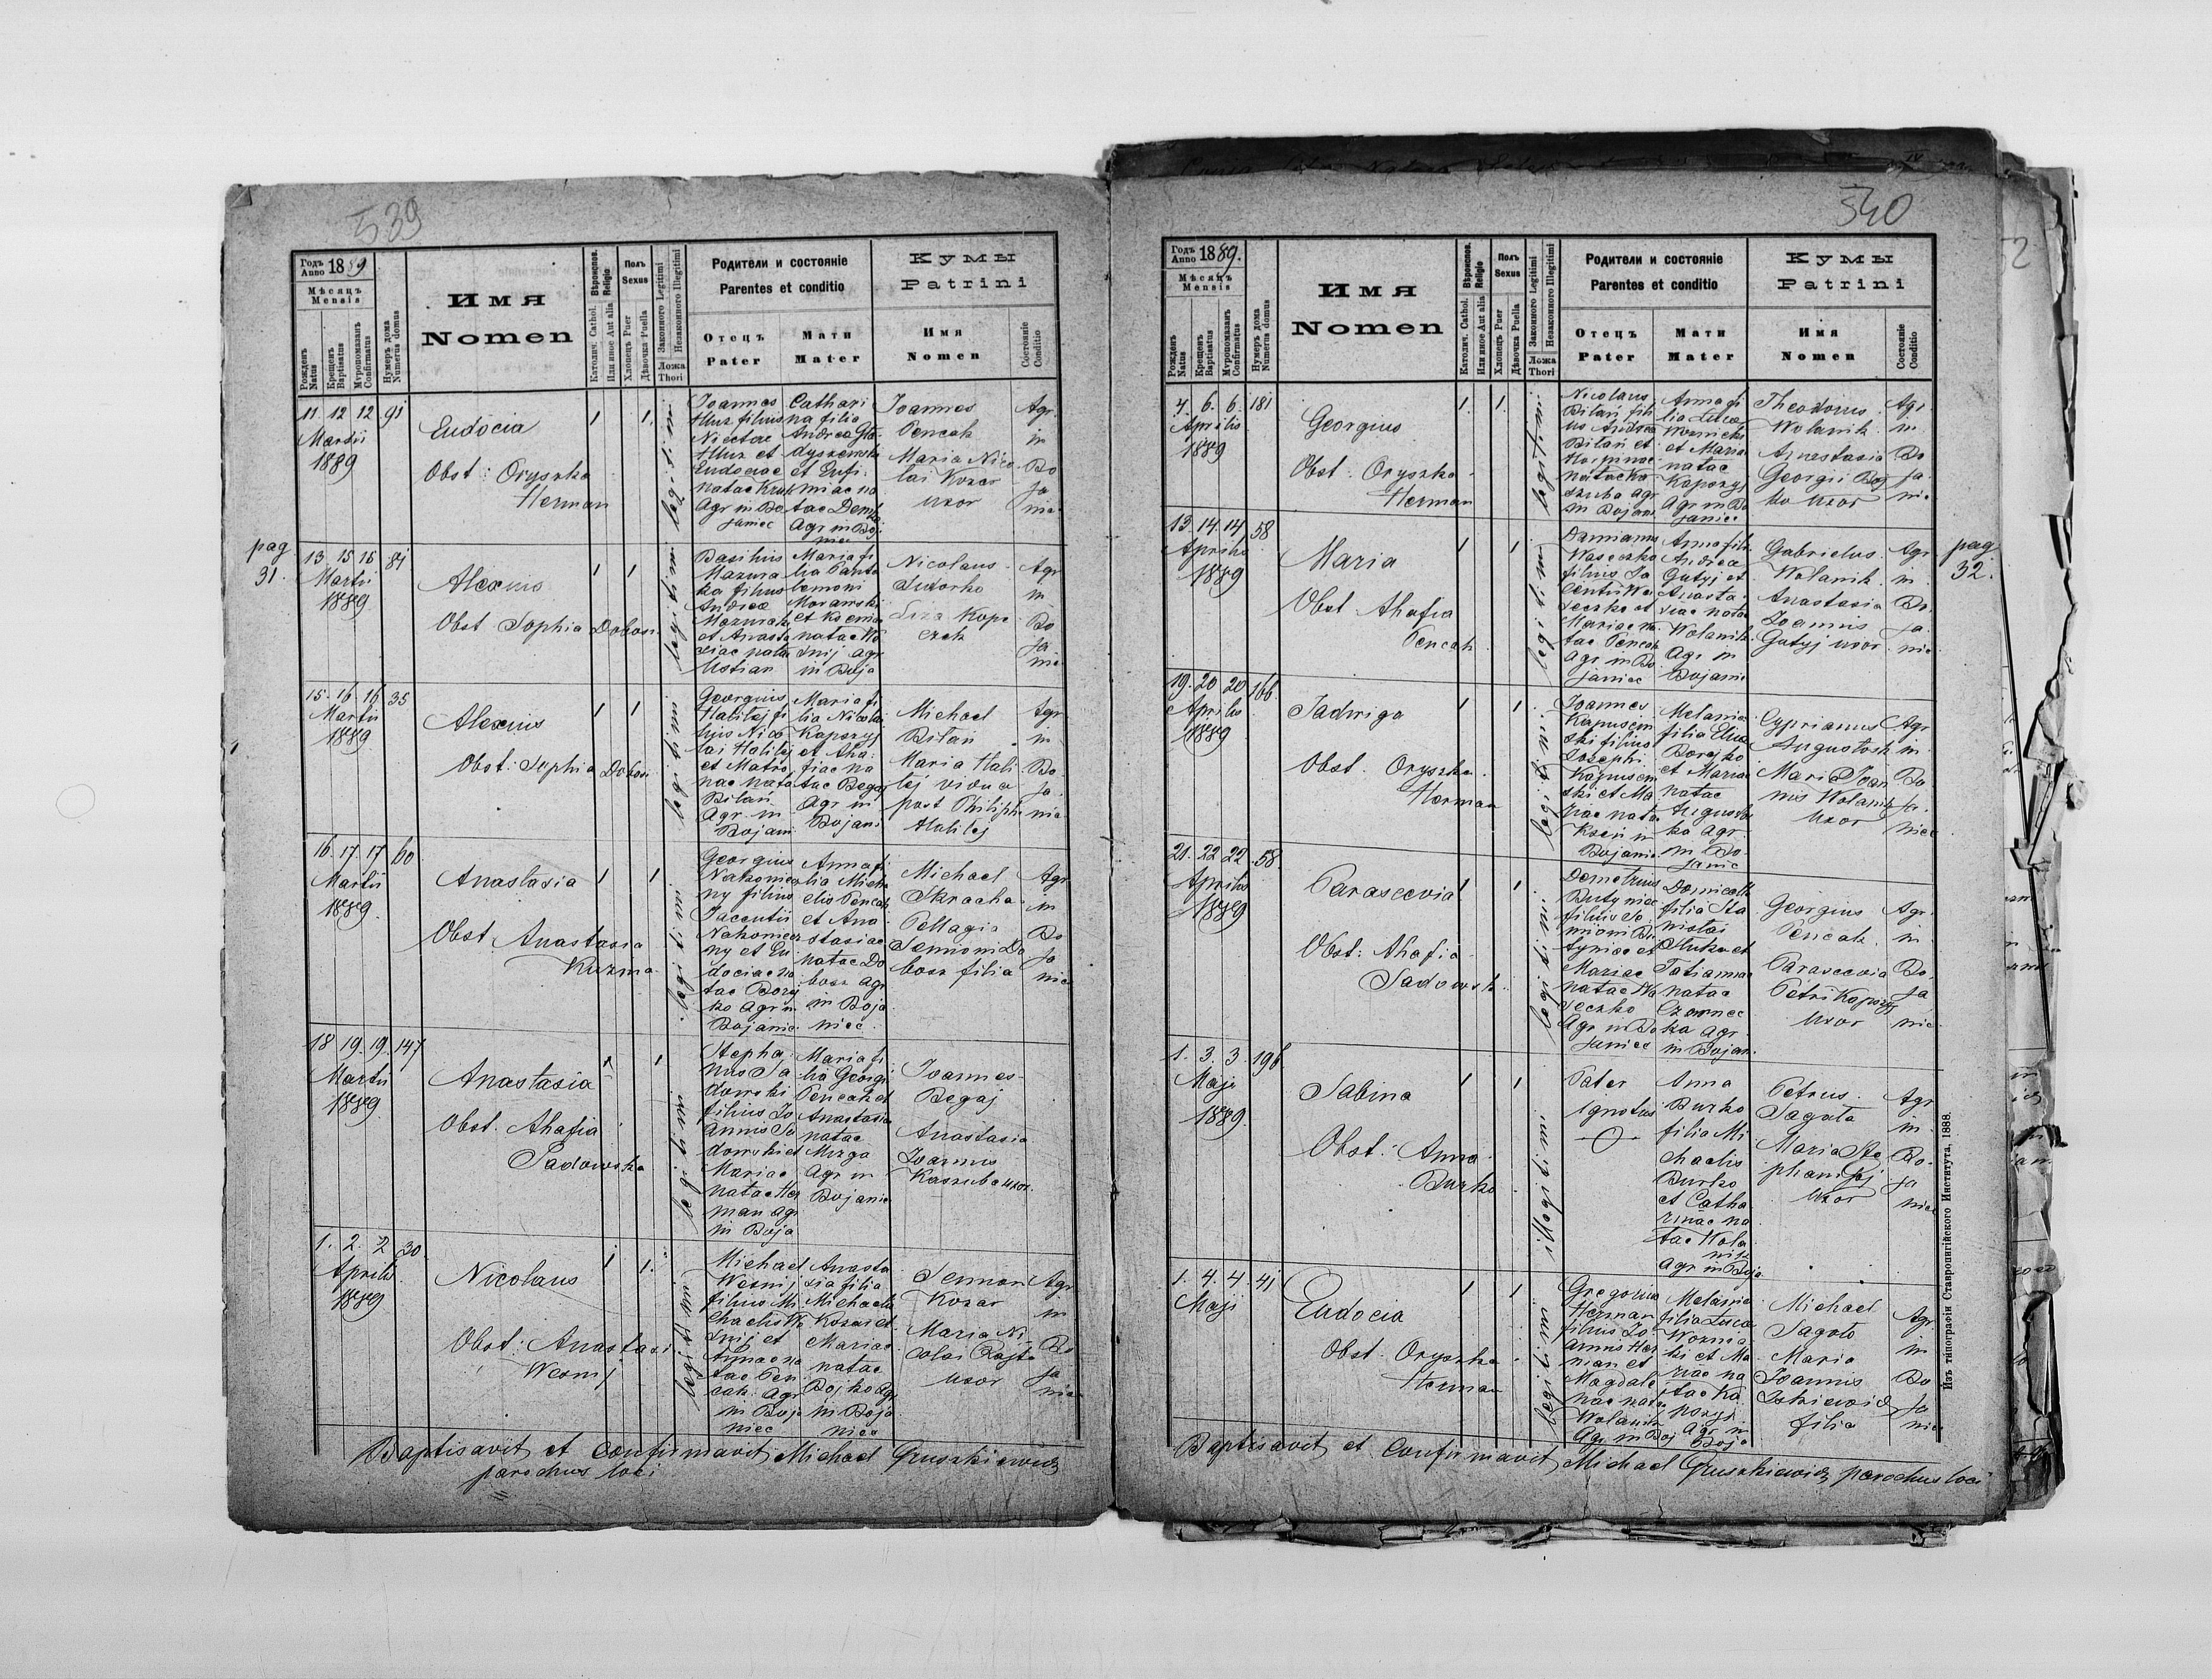 539
Годъ Anno 1889
Мѣсяцъ
Mensis
Рожденъ Natus
Крещенъ Baptisatus
Мѵропомазанъ Confirmatus
Нумеръ дома
Numerus domus
Имя
Nomen
Вѣроиспов.
Religio
Католич. Cathol.
Или иное Aut alia
Полъ
Sexus
Хлопецъ Puer
Дѣвочка Puella
Законного Legitimi
Незаконного Illegitimi
Ложа
Thori
Родители и состояніе
Parentes et conditio
Отецъ
Pater
Мати
Mater
Кумы
Patrini
Имя
Nomen
Состояніе
Conditio
11 12 12 91
Martii
1889
Eudocia
Obst: Oryszka
Herman
1 1.
legitimi
Joannes
filius
Eudociae et
Agr in Bo
janiec
Cathari
na filia
Andreae
et Eufi
miae na
tae
Agr in Boj
niec
Joannes
Pencak
Maria Nico
lai Kozar
uxor
Agr.
in
Bo
ja
nie
pag
31.
13 15 15 84
Martii
1889
Alexius
Obst Sophia Dobosz
1 1
legitimi
Basilius
Mazura
ka filius
Andreae
Mazurak
et Anasta
siae natae
Ustian
Maria fi
lia Panta
lemoni
Morawski
natae Wo
znij agr
in Boja
Nicolaus
Agr
in
Bo
ja
nie
15. 16. 16 35
Martii
1889
Alexius
Obst: Sophia Dobosz
1 1
legitimi
Georgius
Halilej fi
lius Nico
lai Halilej
et Matro
nae natae
Bilan
Agr in
Bojani
Maria fi
lia Nicolai
Kaporzyj
et Aha
fiae na
tae Begaj
Agr in
Bojani
Michael
Bilan
Maria Hali
lej vidua
post Philippi
Halilej
Agr
in
Bo
ja
nie
16. 17. 17 60
Martii
1889
Anastasia
Obst Anastasia
Kuzma
1 1
legitimi
Georgius
Nakonecz
ny filius
Nakonecz
ny et Eu
dociae na
tae Borej
ko Agr in
Bojanie
Anna fi
lia Micha
elis Pencak
et Ana
stasiae
natae Do
bosz agr
in Boja
niec
Michael
Skracha
Pellagia
Semioni Do
bosz filia
Agr
in
Bo
ja
nie
18 19. 19. 147
Martii
1889
Anastasia
Obst. Ahafia
Sadowska
1 1
legitimi
Stepha
nus Sa
dowski
filius Jo
annis Sa
dowski et
Mariae
natae Her
man agr
in Boja
Maria fi
lia Georgi
Pencak et
Anastasia
natae
Mizga
Agr in
Bojanie
Joannes
Begaj
Anastasia
Joannis
Kaszuba uxor
1. 2. 2 30
Aprilis
1889
Nicolaus
Obst: Anastasi
Wesnij
1 1.
legitimi
Michael
Wesnij
filius Mi
chaelis We
snij et
Annae na
tae Pen
cak. Agr
in Boja
niec
Anasta
sia filia
Michaelis
Kozar et
Mariae
natae
Bojko Agr
in Boja
niec
Semion
Kozar
Maria Ni
colai Rojko
uxor
Agr
in
Bo
ja
nie
Baptisavit et Confirmavit Michael Gruszkiewicz
parochus loci
540
Годъ Anno 1889.
Мѣсяцъ
Mensis
Рожденъ Natus
Крещенъ Baptisatus
Мѵропомазанъ Confirmatus
Нумеръ дома
Numerus domus
Имя
Nomen
Вѣроиспов.
Religio
Католич. Cathol.
Или иное Aut alia
Полъ
Sexus
Хлопецъ Puer
Дѣвочка Puella
Законного Legitimi
Незаконного Illegitimi
Ложа
Thori
Родители и состояніе
Parentes et conditio
Отецъ
Pater
Мати
Mater
Кумы
Patrini
Имя
Nomen
Состояніе
Conditio
4. 6. 6. 181
Aprilis
1889
Georgius
Obst. Oryszka
Herman
1. 1.
legitimi
Nicolaus
Bilan fili
us Andreae
Bilan et
natae Ka
szuba agr
in Bojani
Anna fi
lia Lucae
et Maria
natae
Kaporzyj
Agr in Bo
janiec
Theodorus
Wolanik
Anastasia
Georgii Boj
ko uxor
Agr
in
Bo
ja
nie
13. 14. 14. 58
Aprilis
1889
Maria
Obst Ahafia
Pencak
1 1
legitimi
Damianus
Waseczko
filius Ja
centii Wa
seczko et
Mariae na
tae Pencak
Agr in Bo
janiec
Anna fili
Andreae
Gutyj et
Anasta
siae natae
Wolanik
Agr in
Bojanie
Gabrielus
Wolanik
Anastasia
Joannis
Gutyj uxor
Agr
in
Bo
ja
nie
pag
32.
19. 20 20 166.
Aprilis
1889
Jadwiga
Obst. Oryszka
Herman
1 1
legitimi
Joannes
Kapuscin
ski filius
Josephi
Kapuscin
ski et Ma
riae natae
in
Bojanie
Melania
filia Eliae
Borejko
et Mariae
natae
Augustos
ka Agr
in Bo
janie
Cyprianus
Augustosk
Maria Joan
nis Wolanik
uxor
Agr
in
Bo
ja.
niec
21. 22 22 58
Aprilis
1889
Parascevia
Obst: Ahafia
Sadowsk
1 1
legitimi
Demetrius
Butyniec
filius Se
mioni Bu
tyniec et
Mariae
natae Wa
seczko
Agr in Bo
janiec
filia Sta
nislai
Tatiannae
natae
Czornec
ka agr
in Bojan
Georgius
Pencak
Parascevia
Petri Kaporzyj
uxor
Agr.
in.
Bo
ja
nie
1. 3. 3 196
Maji
1889.
Sabina
Obst: Anna
Burko
1 1
illegitimi
Pater
ignotus
Anna
Burko
filia Mi
chaelis
Burko
et Catha
rinae na
tae Wola
nik
Agr in Boja
Petrus
Sagata
Maria Ste
phani Goj
uxor
Agr
in
Bo
ja
niec
1. 4. 4. 41
Maji
Eudocia
Obst. Oryszka
Herman
1 1
legitimi
Gregorius
Herman
filius Jo
annis Her
man et
Magdale
nae natae
Wolanik
Agr in Boj
Melania
filia Lucae
Woznia
ki et Ma
riae na
tae Ka
porzyj
Agr in
Boja
Michael
Sagato
Maria
Joannis
filia
Agr
in
Bo
ja
nie
Baptisavit et Confirmavit Michael Gruszkiewicz parochus loci
Изъ типографіи Ставропигійского Института, 1888.